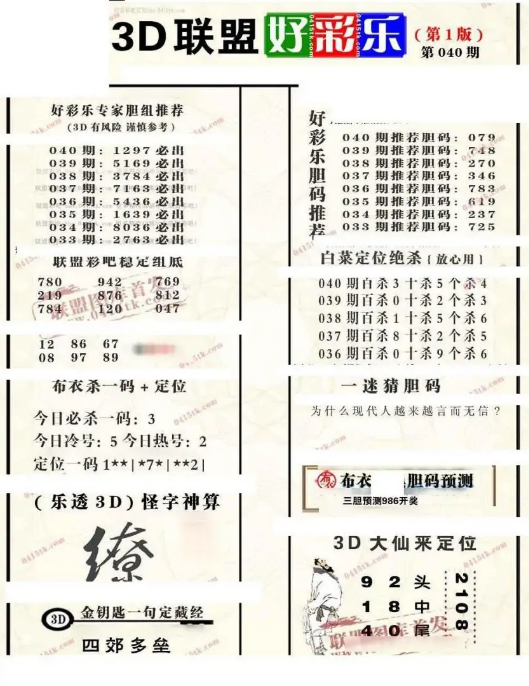 3D联盟 好彩乐 (第1版)
第040期
好彩乐专家胆组推荐
(3D有风险 谨慎参考)
040期: 1297必出
039期: 5169必出
038期: 3784必出
037期: 7163必出
036期: 5436必出
035期: 1639必出
034期: 8036必出
033期: 2763必出
联盟彩吧稳定组底
780 942 769
219 876 812
784 120 047
12 86 67
08 97 89
布衣杀一码+定位
今日必杀一码: 3
今日冷号: 5 今日热号: 2
定位一码1**|*7*|**2|
(乐透3D)怪字神算
3D 金钥匙一句定藏经
四郊多垒
好彩乐胆码推荐
040期推荐胆码: 079
039期推荐胆码: 748
038期推荐胆码: 270
037期推荐胆码: 346
036期推荐胆码: 783
035期推荐胆码: 619
034期推荐胆码: 237
033期推荐胆码: 725
白菜定位绝杀(放心用)
040期百杀3十杀5个杀4
039期百杀0十杀2个杀3
038期百杀1十杀5个杀6
037期百杀8十杀2个杀5
036期百杀0十杀9个杀6
一迷猜胆码
为什么现代人越来越言而无信?
布衣 胆码预测
三胆预测986开奖
3D大仙来定位
9 2 头
1 8 中
4 0 尾
2108